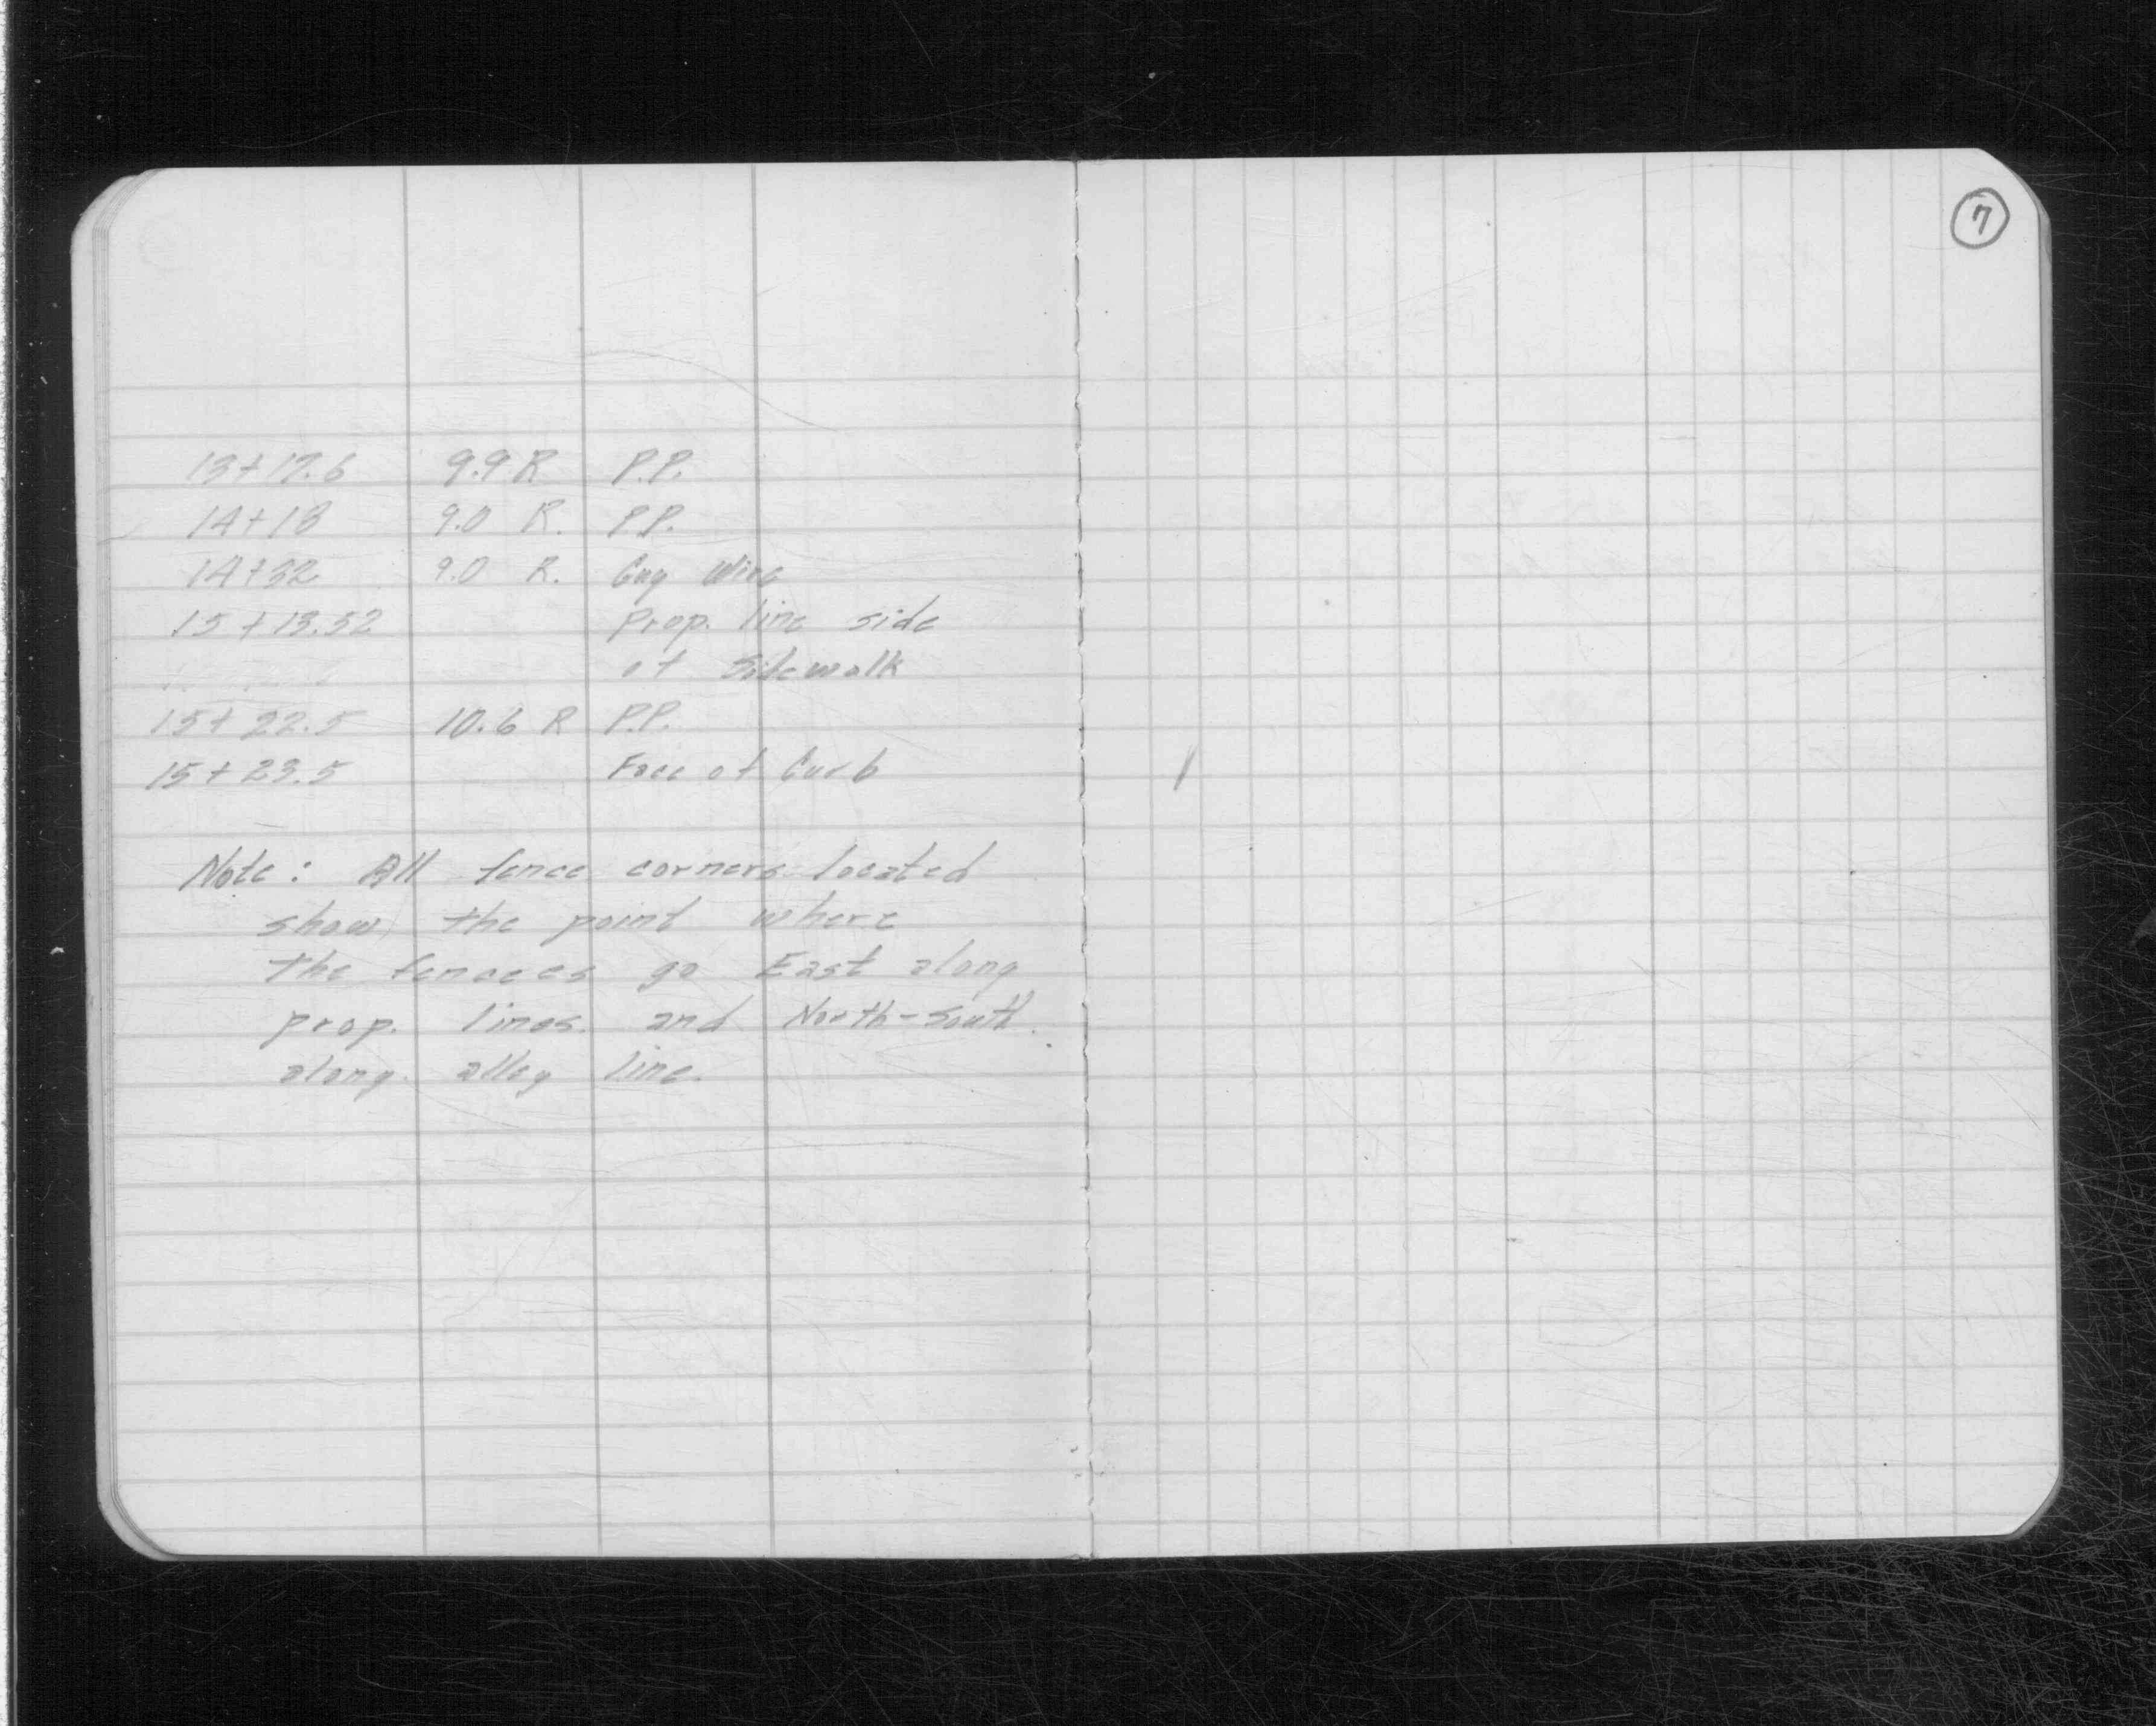 7
13+17.6 9.9 R P.P.
14+18 9.0 R. P.P.
14+32 9.0 R. Guy Wire
15+13.52 Prop. line side
of Sidewalk
15+22.5 10.6 R P.P.
15+23.5 Face of Curb
Note: All fence corners located
show the point where
the fencees go East along
prop. lines and North-South
along alley line.